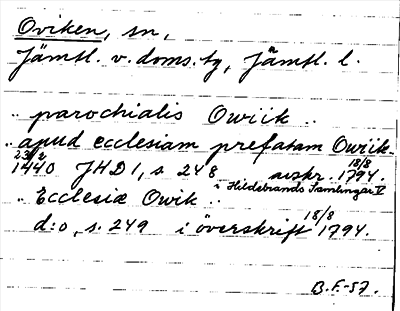 Oviken, sn,
Jämtl. v. doms. tg, Jämtl. l.
.. parochialis Owiik ..
.. apud ecclesiam prefatam Owiik.
23/2 1440 JHD 1, s. 248 avskr. 18/8 1794.
i Hildebrands Samlingar V
.. Ecclesiæ Owik ..
d:o, s. 249 i överskrift 18/8 1794.
B.F.-57.